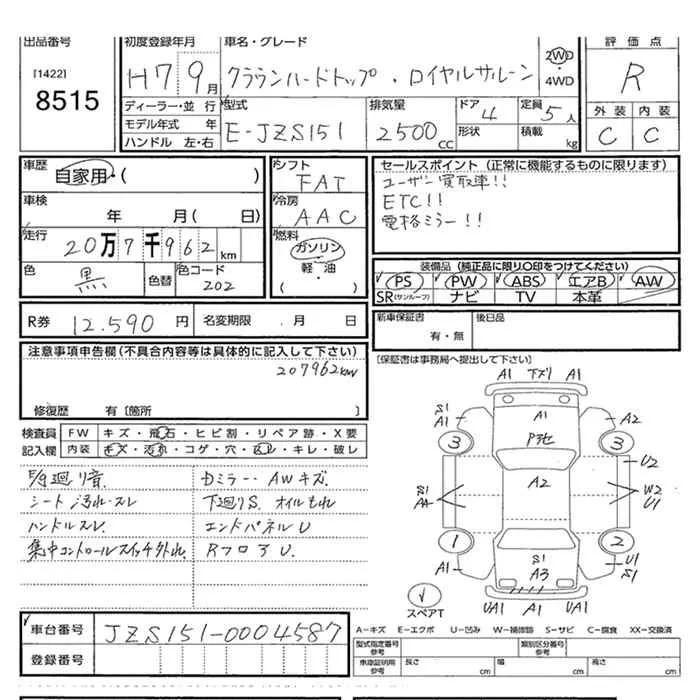 出品番号
[1422]
8515
初度登録年月
H7 9月
車名・グレード
クラウンハードトップ・ロイヤルサルーン
2WD
4WD
評価点
R
外装 内装
C C
ディーラー・並 行
モデル年式 年
ハンドル 左・右
型式
E-JZS151
排気量
2500cc
ドア
4
形状
定員
5人
積載 kg
車歴
自家用・( )
車検
年 月( 日)
走行
20万7千962km
色
黒
色替
色コード
202
シフト
FAT
冷房
AAC
燃料
ガソリン
軽・油
( )
セールスポイント(正常に機能するものに限ります)
ユーザー買取車!!
ETC!!
電格ミラー!!
装備品(純正品に限り○印をつけてください)
PS PW ABS エアB AW
SR(サンルーフ) ナビ TV 本革
R券 12.590円 名変期限 . 月 日
新車保証書
有・無
後日品
[保証書は事務局へ提出して下さい]
注意事項申告欄(不具合内容等は具体的に記入して下さい)
207962km
修復歴 有[箇所 ]
検査員
記入欄
FW キズ・飛石・ヒビ割・リペア跡・X要
内装 キズ・汚れ・コゲ・穴・スレ・キレ・破レ
シート汚れ・スレ
ハンドルスレ
集中コントロールスイッチ外れ.
Dミラー・AWキズ.
下廻りS. オイルもれ
エンドパネルU
RフロアU.
A1 下ズリ A1
S1
A1
A1
A2
3
3
P地
A2
U2
S1
AA
W2
U1
1
2
A1
S1
A3
U1
S1
スペアT
UA1 A1 UA1
車台番号
JZS151-0004587
登録番号
A-キズ E-エクボ U-凹み W-補修跡 S-サビ C-腐食 XX-交換済
型式指定番号
参考
類別区分番号
参考
車庫証明用
参考
長さ cm
幅 cm
高さ cm